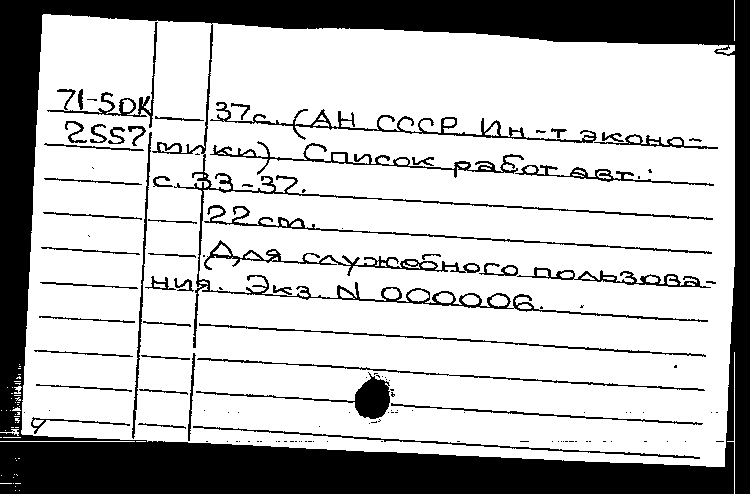 71-5DK 37с. (АН СССР. Ин-т эконо-
2557 мики). Список работ авт.:
с. 33-37.
22 cm.
Для служебного пользова-
ния. Экз. N 000006.